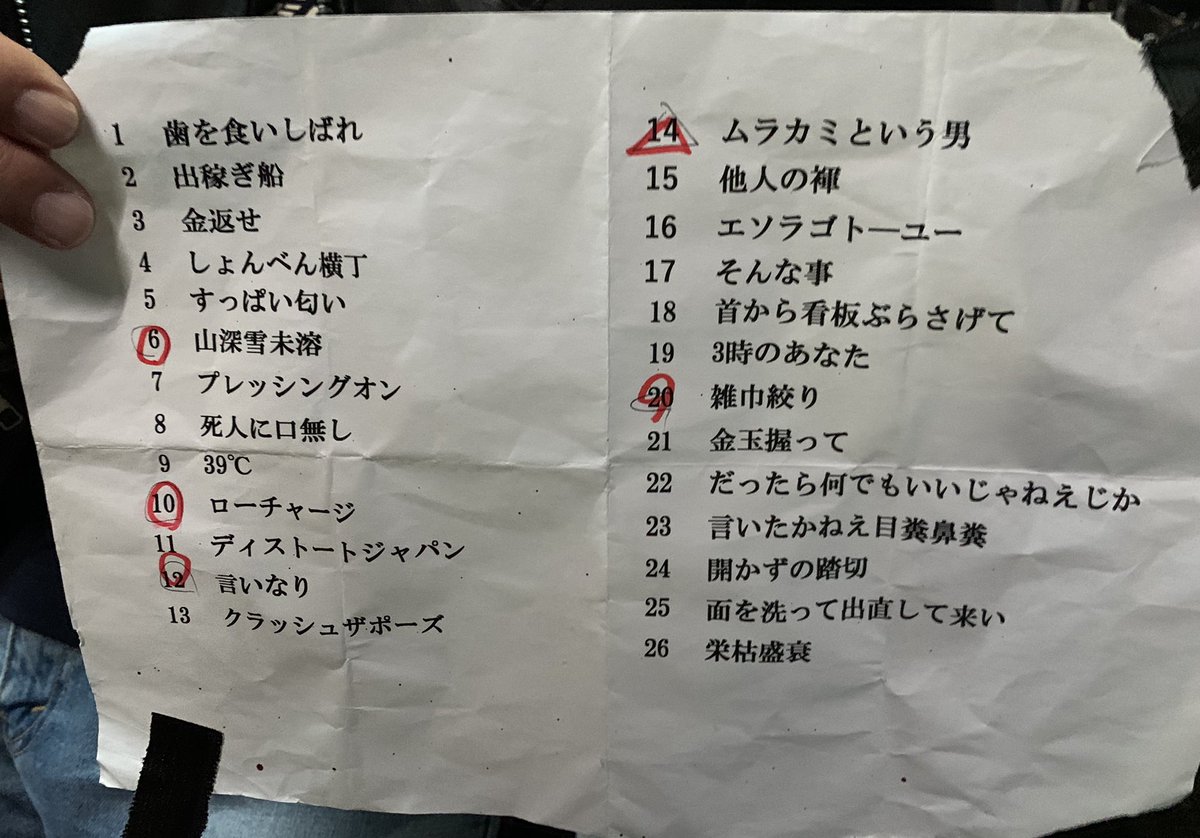 1 歯を食いしばれ
2 出稼ぎ船
3 金返せ
4 しょんべん横丁
5 すっぱい匂い
6 山深雪未溶
7 プレッシングオン
8 死人に口無し
9 39℃
10 ローチャージ
11 ディストートジャパン
12 言いなり
13 クラッシュザポーズ
14 ムラカミという男
15 他人の褌
16 エソラゴト―ユー
17 そんな事
18 首から看板ぶらさげて
19 3時のあなた
20 雑巾絞り
21 金玉握って
22 だったら何でもいいじゃねえじか
23 言いたかねえ目糞鼻糞
24 開かずの踏切
25 面を洗って出直して来い
26 栄枯盛衰